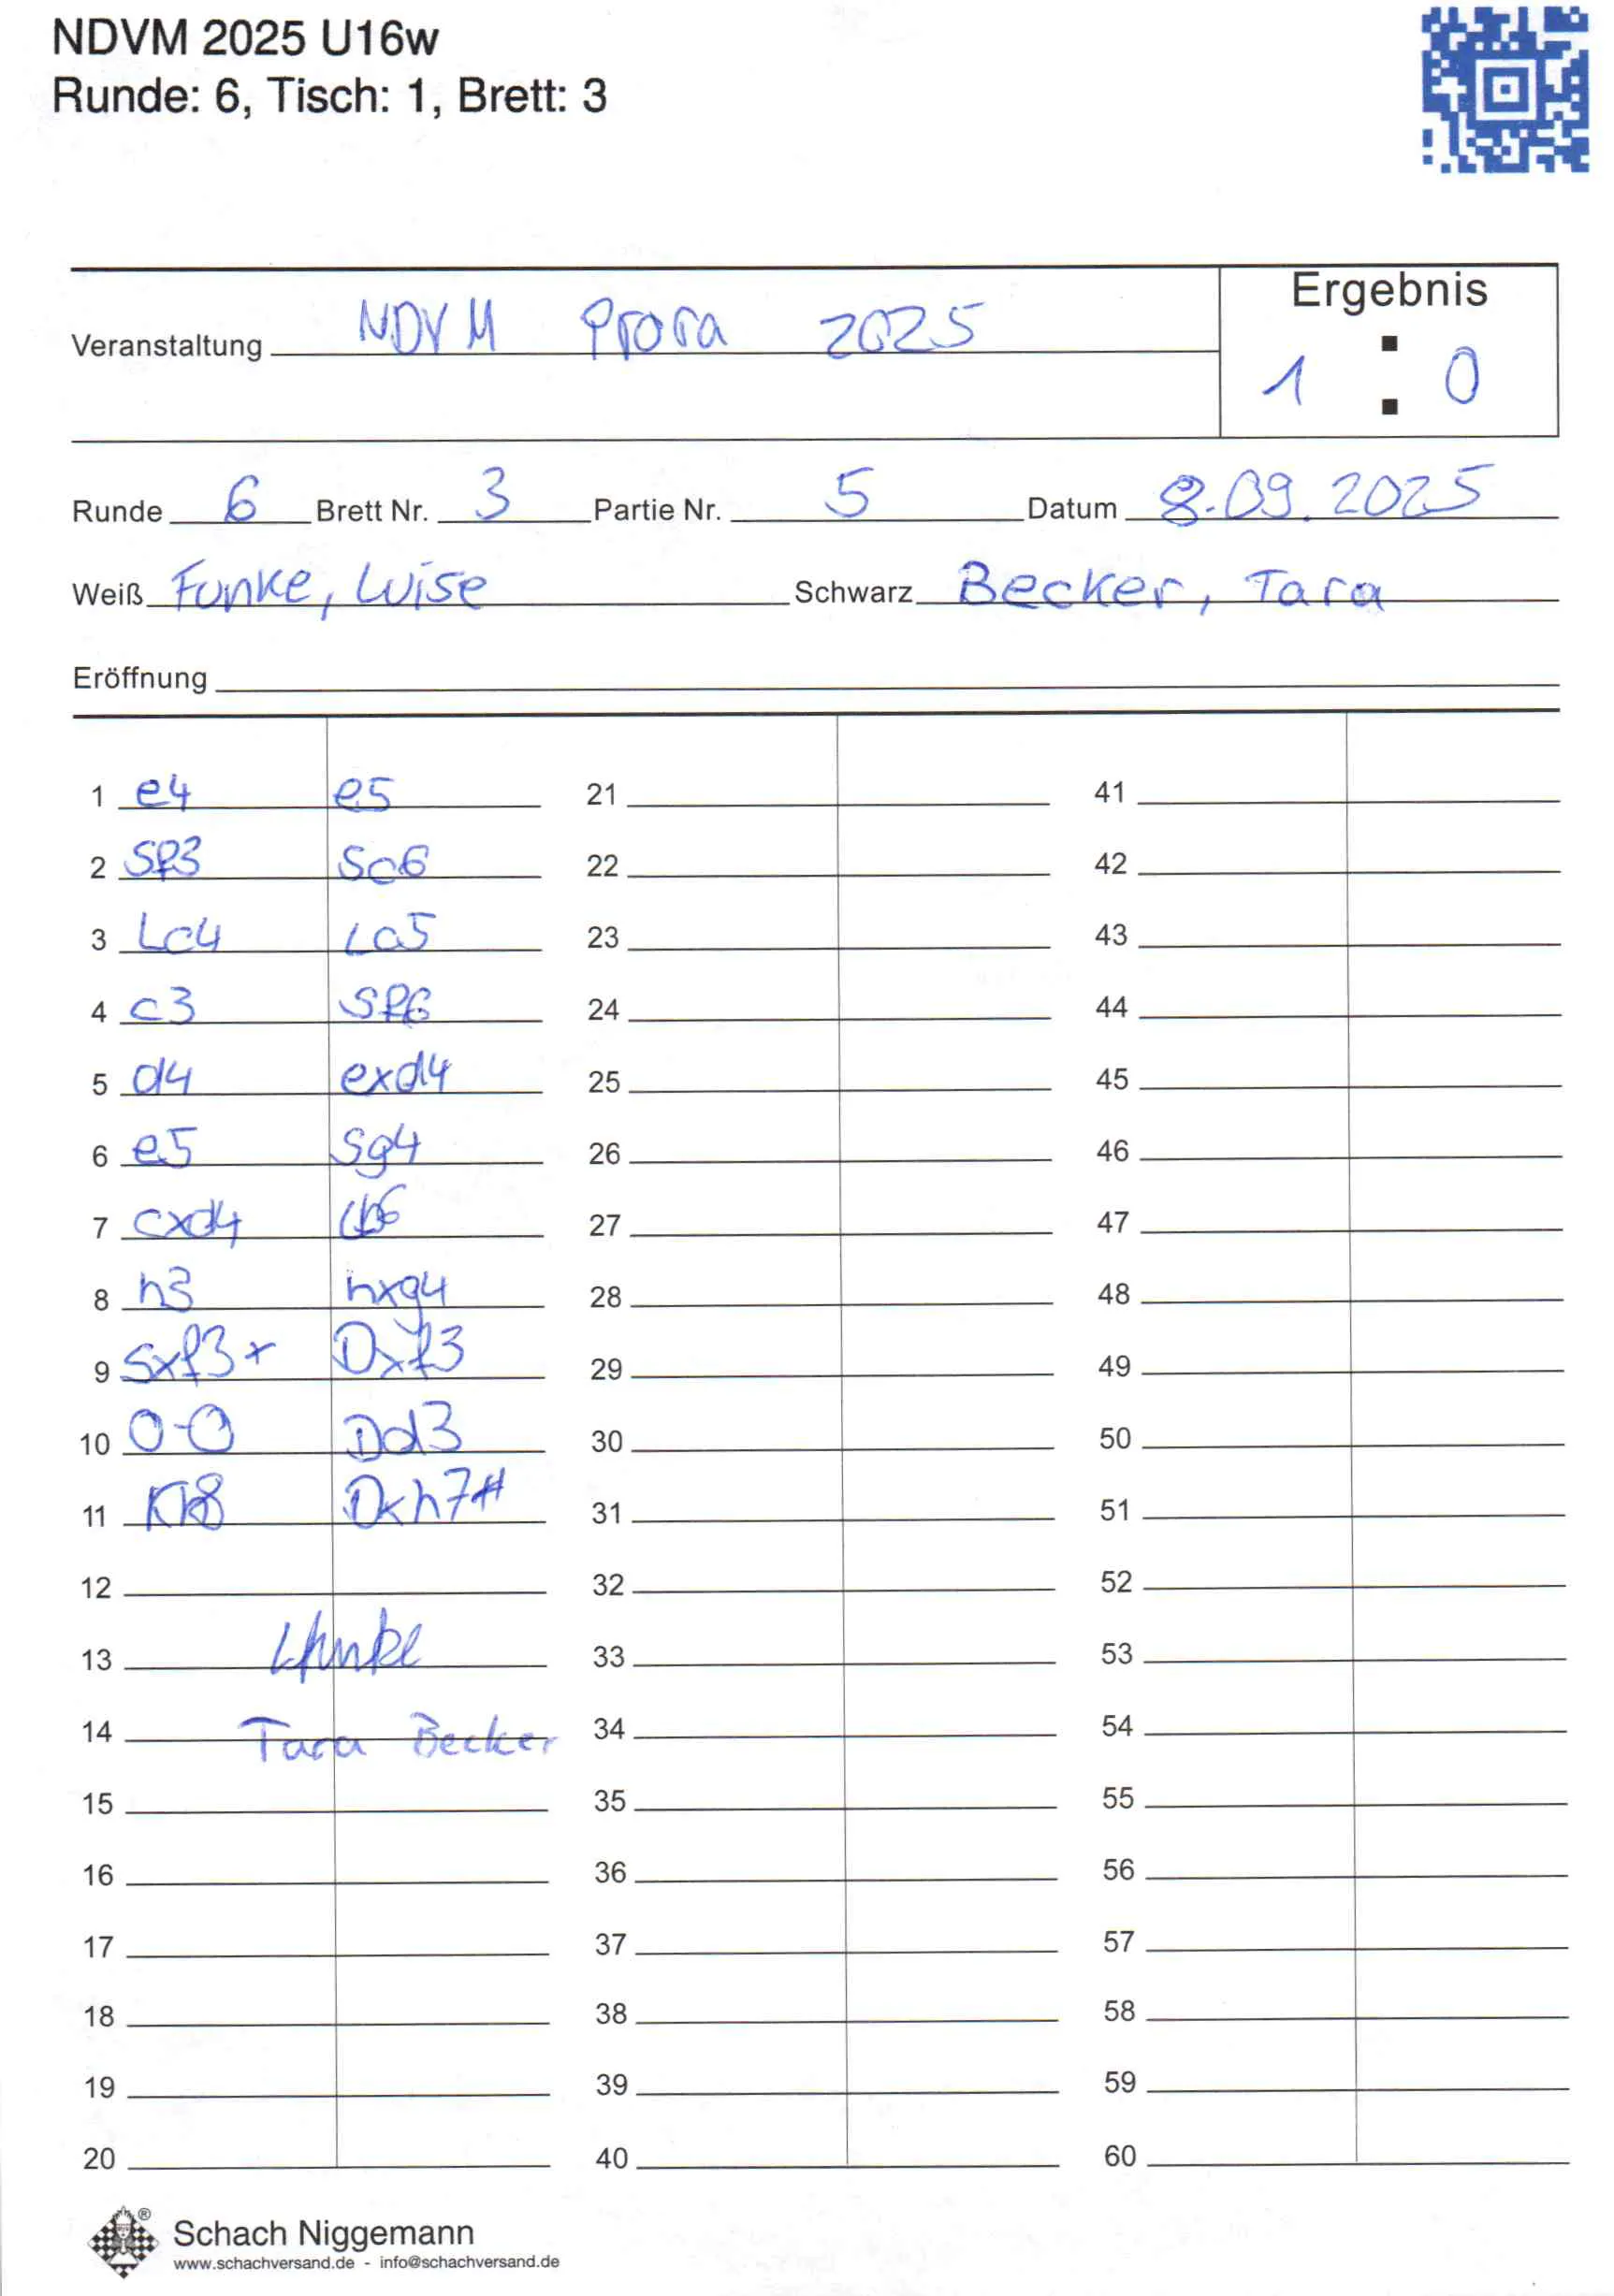 NDVM 2025 U16w
Runde: 6, Tisch: 1, Brett: 3
Ergebnis
Veranstaltung NDVM Prora 2025
1 : 0
Runde 6 Brett Nr. 3 Partie Nr. 5 Datum 8.09.2025
Weiß Funke, Luise Schwarz Becker, Tara
Eröffnung
1 e4 e5 21 41
2 Sf3 Sc6 22 42
3 Lc4 Lc5 23 43
4 c3 Sf6 24 44
5 d4 exd4 25 45
6 e5 Sg4 26 46
7 cxd4 Lb6 27 47
8 h3 hxg4 28 48
9 Sxf3+ Dxf3 29 49
10 0-0 Dd3 30 50
11 Kh8 Dxh7# 31 51
12 32 52
13 LFunke 33 53
14 Tara Becker 34 54
15 35 55
16 36 56
17 37 57
18 38 58
19 39 59
20 40 60
® Schach Niggemann
www.schachversand.de - info@schachversand.de